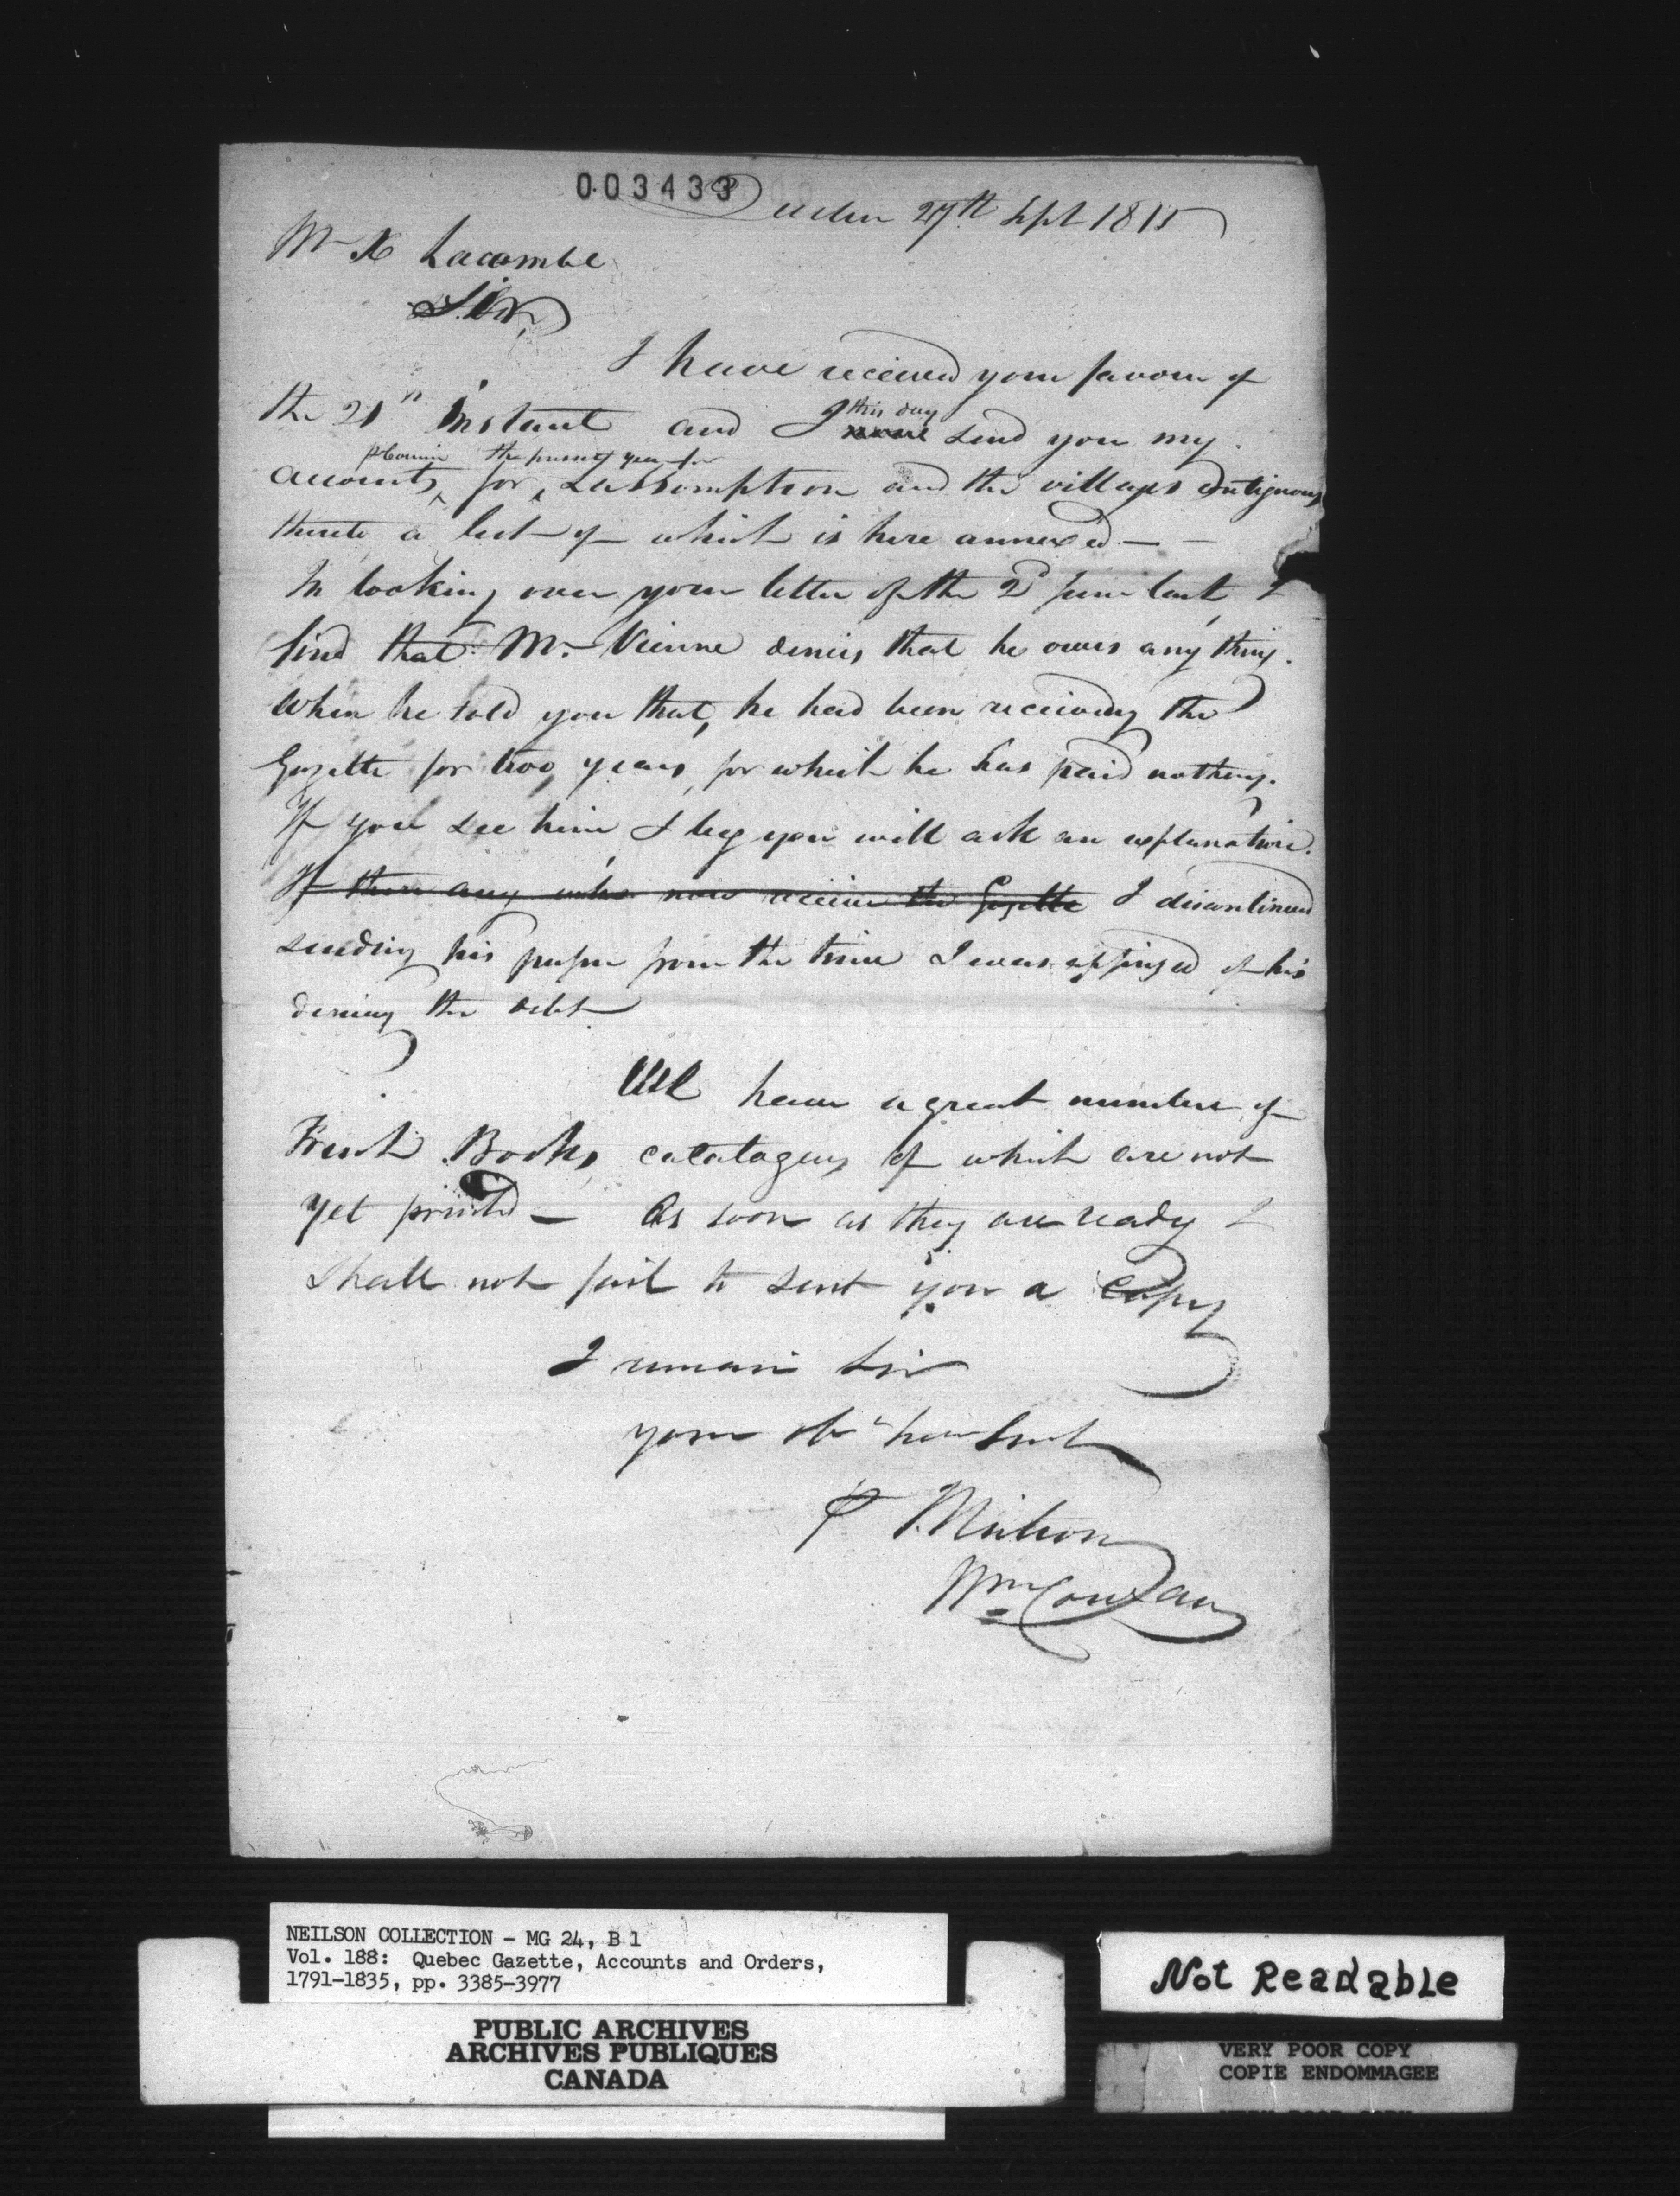 003433
Quebec 27th Sept 1815
Mr X Lacombe
Sir,
I have received your favour of
this day
the 21st instant and I send you my
the present year for
accounts, for, Lassomption and the villages contiguous
thereto a list of which is here annexed —
In looking over your letter of the 2d June last I
find that Mr. Vienne denies that he owes any thing.
When he told you that, he had been receiving the
Gazette for two years, for which he has paid nothing.
If you see him I beg you will ask an explanation.
If there any who now receive the Gazette I discontinued
sending his paper from the time I was apprized of his
denying the debt
We have a great number of
French Books, catalogues of which are not
yet printed — As soon as they are ready I
shall not fail to sent you a copy
I remain Sir
your obt hum Servt
P J. Neilson
Wm Cowan
NEILSON COLLECTION - MG 24, B 1
Vol. 188: Quebec Gazette, Accounts and Orders,
1791-1835, pp. 3385-3977
PUBLIC ARCHIVES
ARCHIVES PUBLIQUES
CANADA
Not Readable
VERY POOR COPY
COPIE ENDOMMAGEE